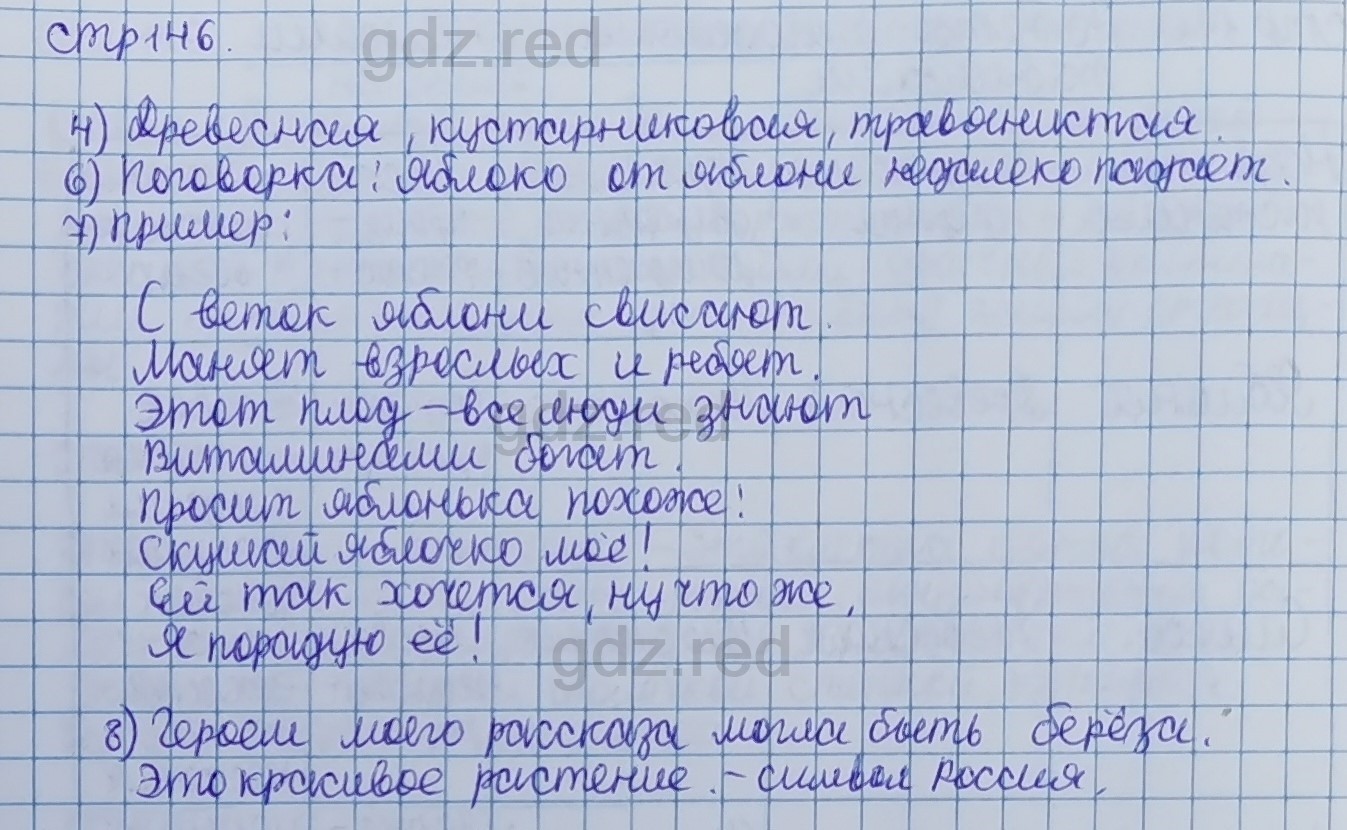 стр 146.
gdz.red
4) Древесная, кустарниковая, травянистая.
6) Поговорка: яблоко от яблони недалеко падает.
7) пример:
С веток яблони свисают.
Манят взрослых и ребят.
Этот плод – все люди знают
gdz.red
Витаминами богат.
просит яблонька похоже:
Скушай яблочко моё!
Ей так хочется, ну что же,
Я порадую её!
gdz.red
8) Героем моего рассказа могла быть берёза.
Это красивое растение. – символ Россия,